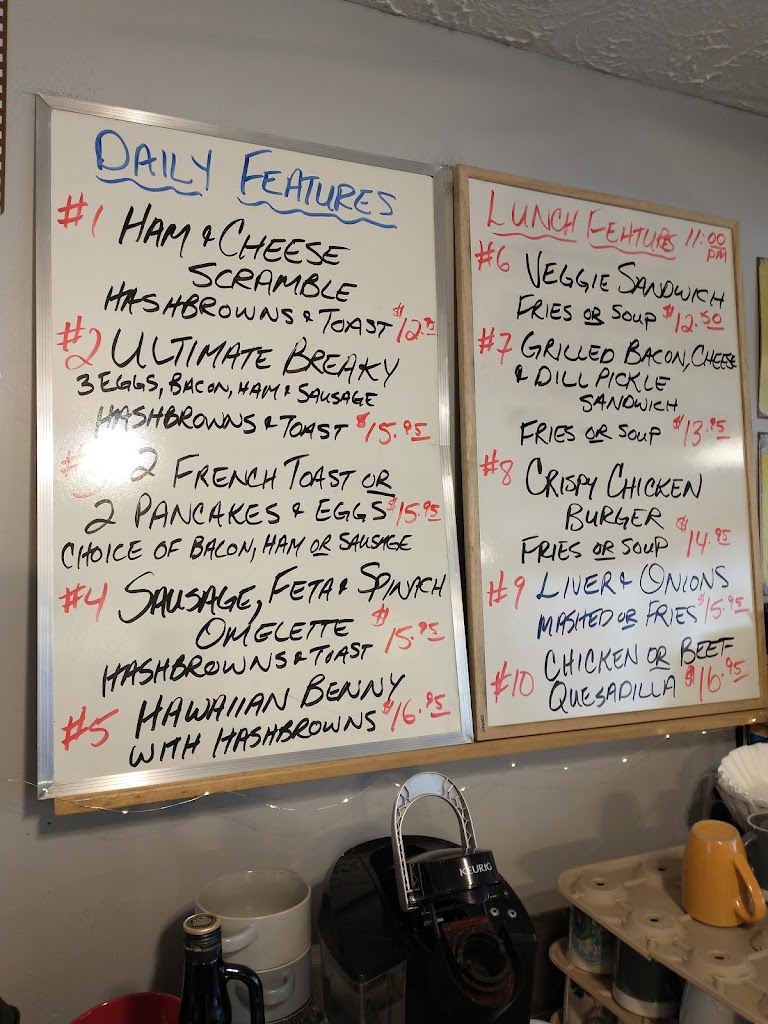 DAILY FEATURES
#1 HAM & CHEESE
SCRAMBLE
HASHBROWNS & TOAST $12.95
#2 ULTIMATE BREAKY
3 EGGS, BACON, HAM & SAUSAGE
HASHBROWNS & TOAST $15.95
#3 2 FRENCH TOAST OR
2 PANCAKES & EGGS $15.95
CHOICE OF BACON, HAM OR SAUSAGE
#4 SAUSAGE, FETA & SPINACH
OMELETTE $15.95
HASHBROWNS & TOAST
#5 HAWAIIAN BENNY
WITH HASHBROWNS $16.95
LUNCH FEATURES 11:00 PM
#6 VEGGIE SANDWICH
FRIES OR SOUP $12.50
#7 GRILLED BACON, CHEESE
& DILL PICKLE
SANDWICH
FRIES OR SOUP $13.95
#8 CRISPY CHICKEN
BURGER
FRIES OR SOUP $14.95
#9 LIVER & ONIONS
MASHED OR FRIES $15.95
#10 CHICKEN OR BEEF
QUESADILLA $16.95
KEURIG